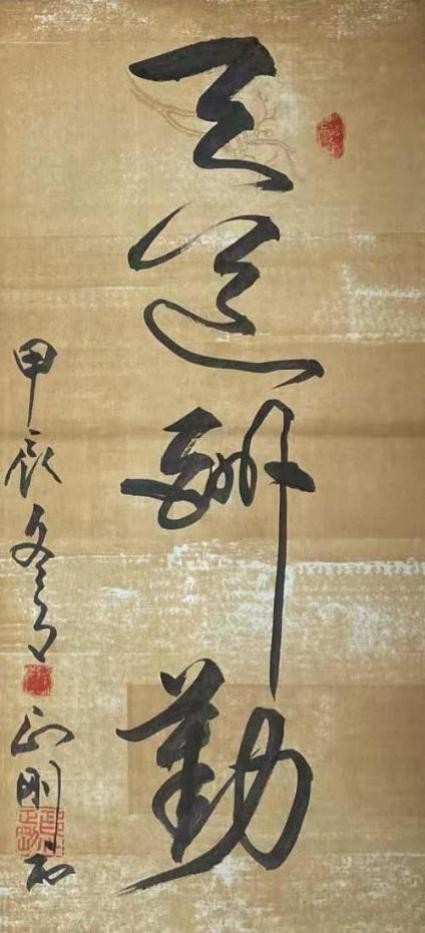 天道酬勤
甲辰冬月 正刚